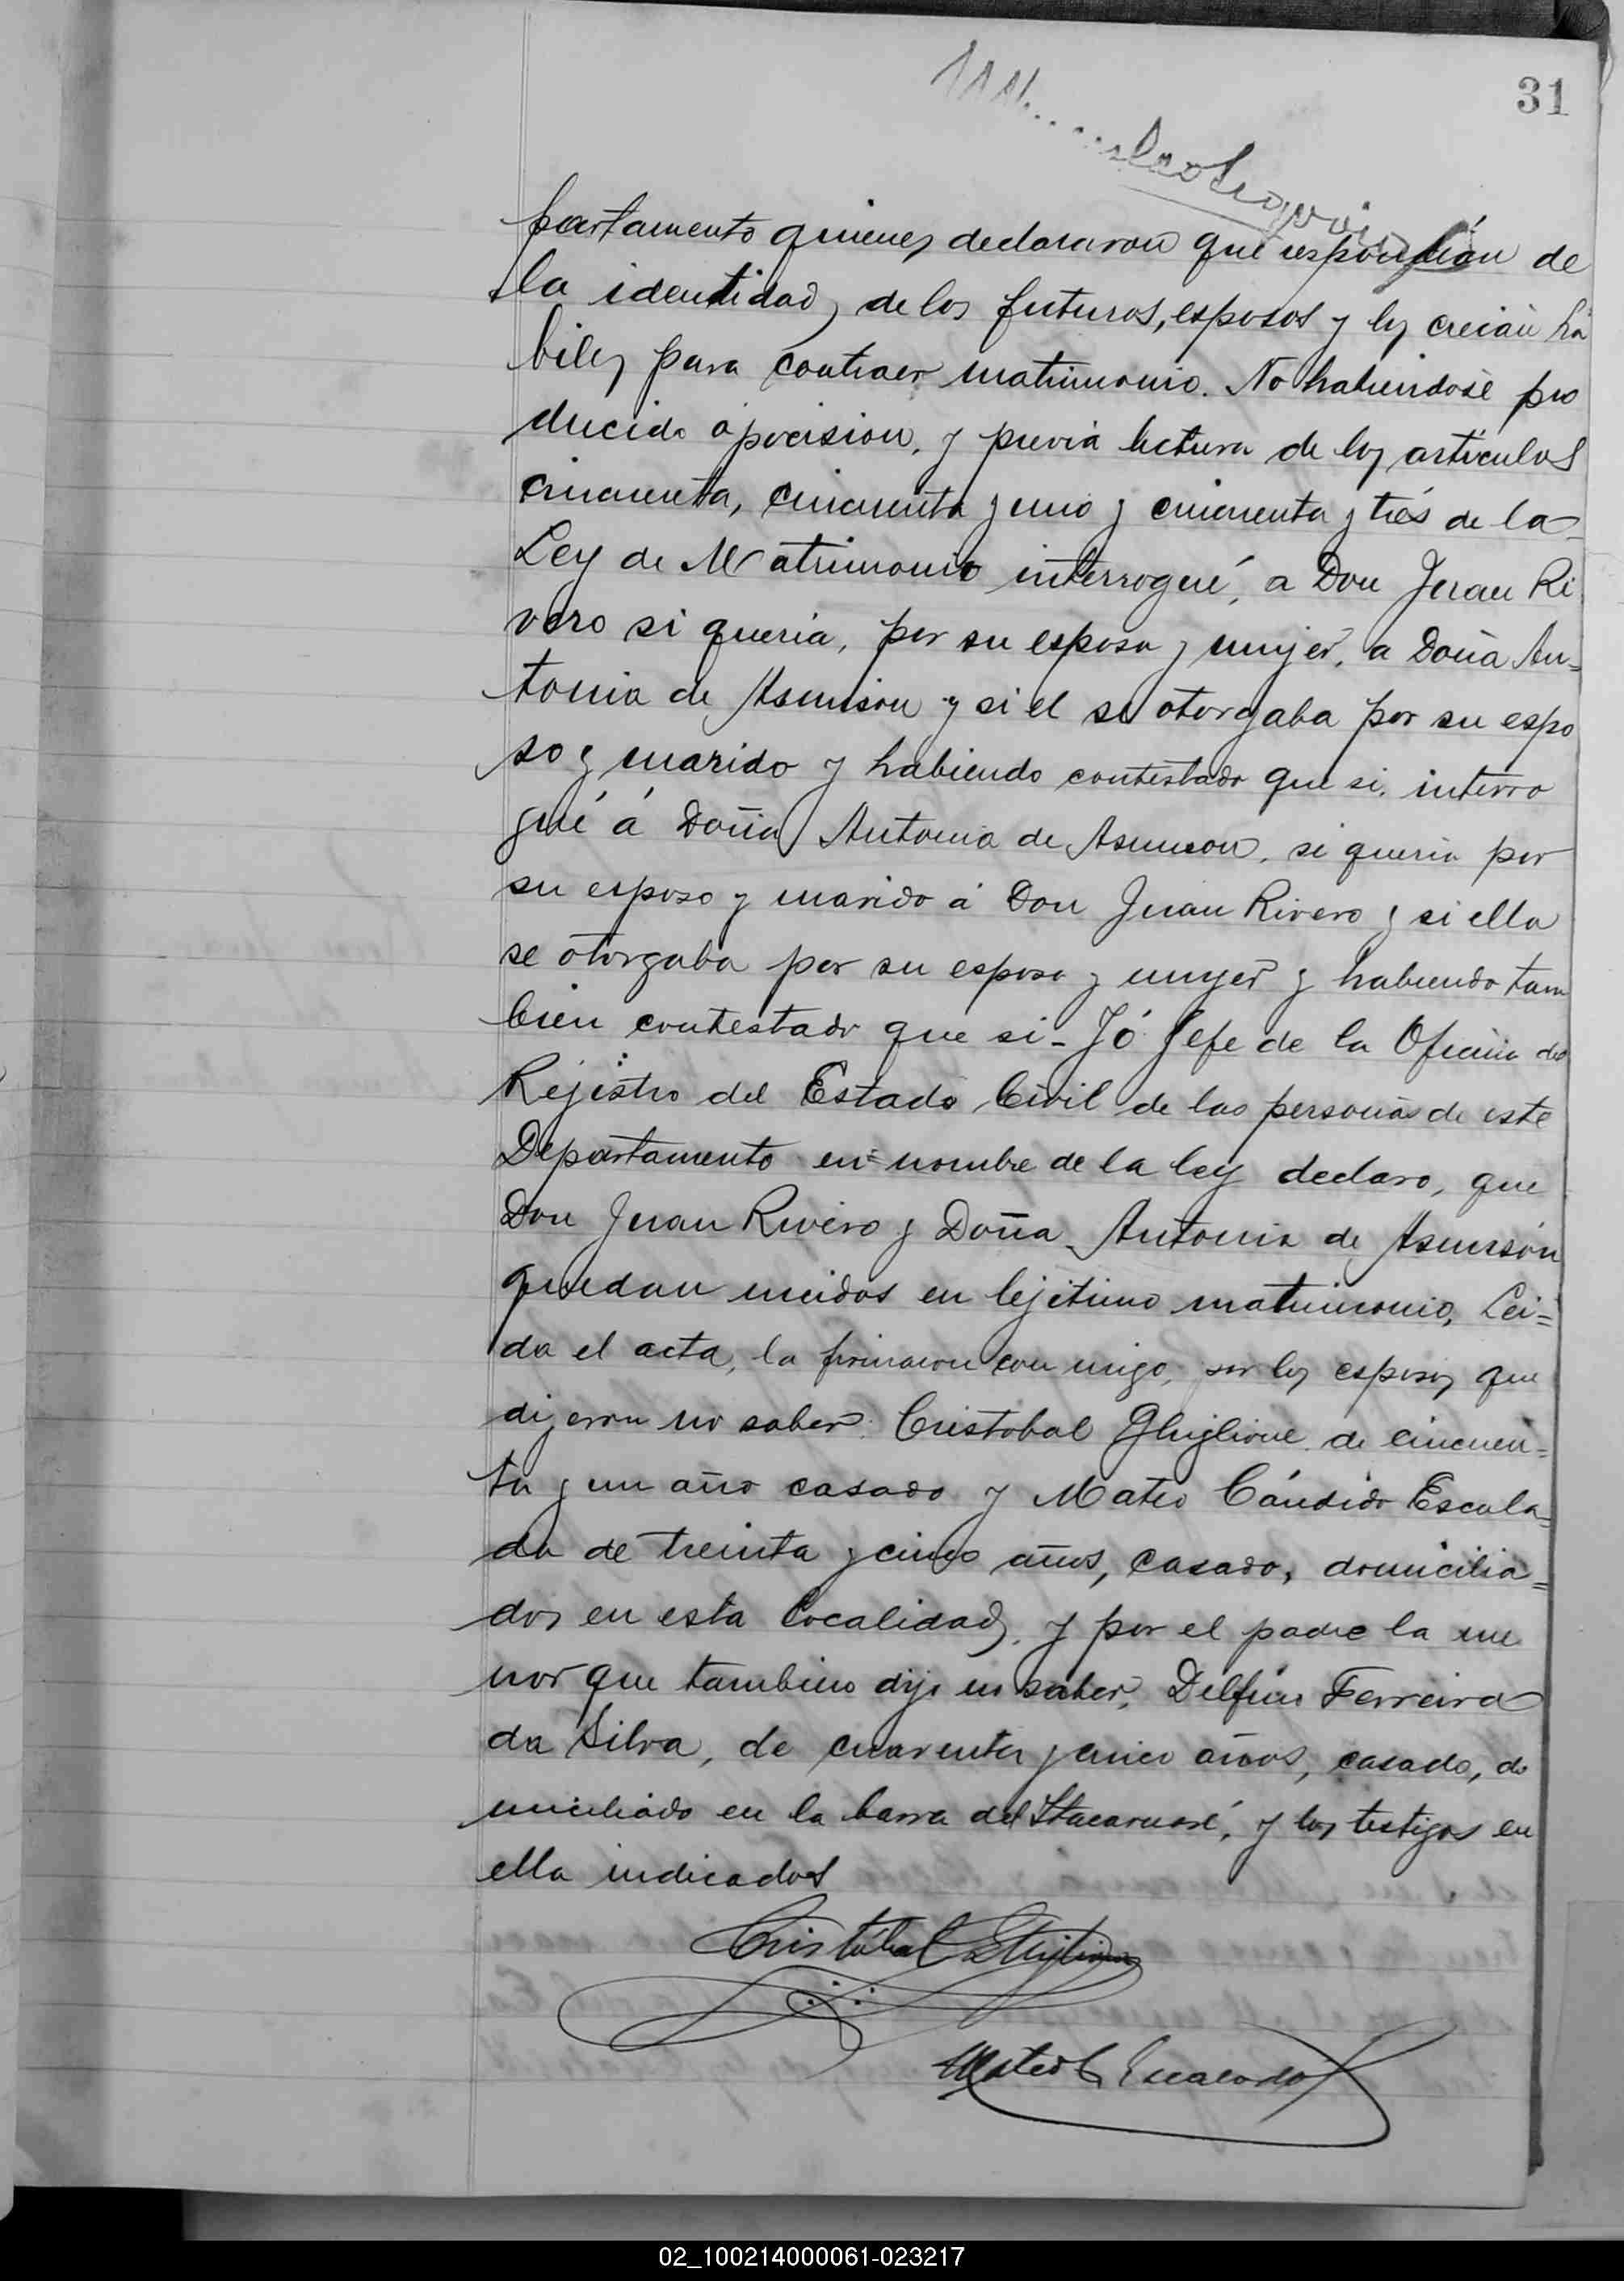 31
partamento quienes declararon que respondían de
la identidad de los futuros, esposos y los creian há
biles para contraer matrimonio. No habiendose pro
ducido oposision, y previa lectura de los artículos
cincuenta, cincuenta y uno y cincuenta y tres de la
Ley de Matrimonio interrogué, a Don Juan Ri
vero si queria, por su esposa y mujer, a Doña An=
tonia de Asunsion y si el se otorgaba por su espo
so y marido y habiendo contestado que si, interro
gué á Doña Antonia de Asuncion, si queria por
su esposo y marido á Don Juan Rivero y si ella
se otorgaba por su esposa y mujer y habiendo tam
bien contestado que si - Yó Jefe de la Oficina del
Rejistro del Estado Civil de las personas de este
Departamento en nombre de la ley declaro, que
Don Juan Rivero y Doña Antonia de Asunsión
quedan unidos en lejitimo matrimonio, Lei=
da el acta, la firmaron con migo, por los esposos que
dijeron no saber. Cristobal Ghiglione de cincuen=
ta y un año casado y Mateo Cándido Escala=
da de treinta y cinco años, casado, domicilia=
dos en esta localidad, y por el padre la me
nor que tambien dijo no saber, Delfin Ferreira
da Silva, de cuarenta y cinco años, casado, do
miciliado en la barra del Itacaruaré, y los testigos en
ella indicados
Cristóbal Ghiglione
Mateo C Escalada
02_100214000061-023217